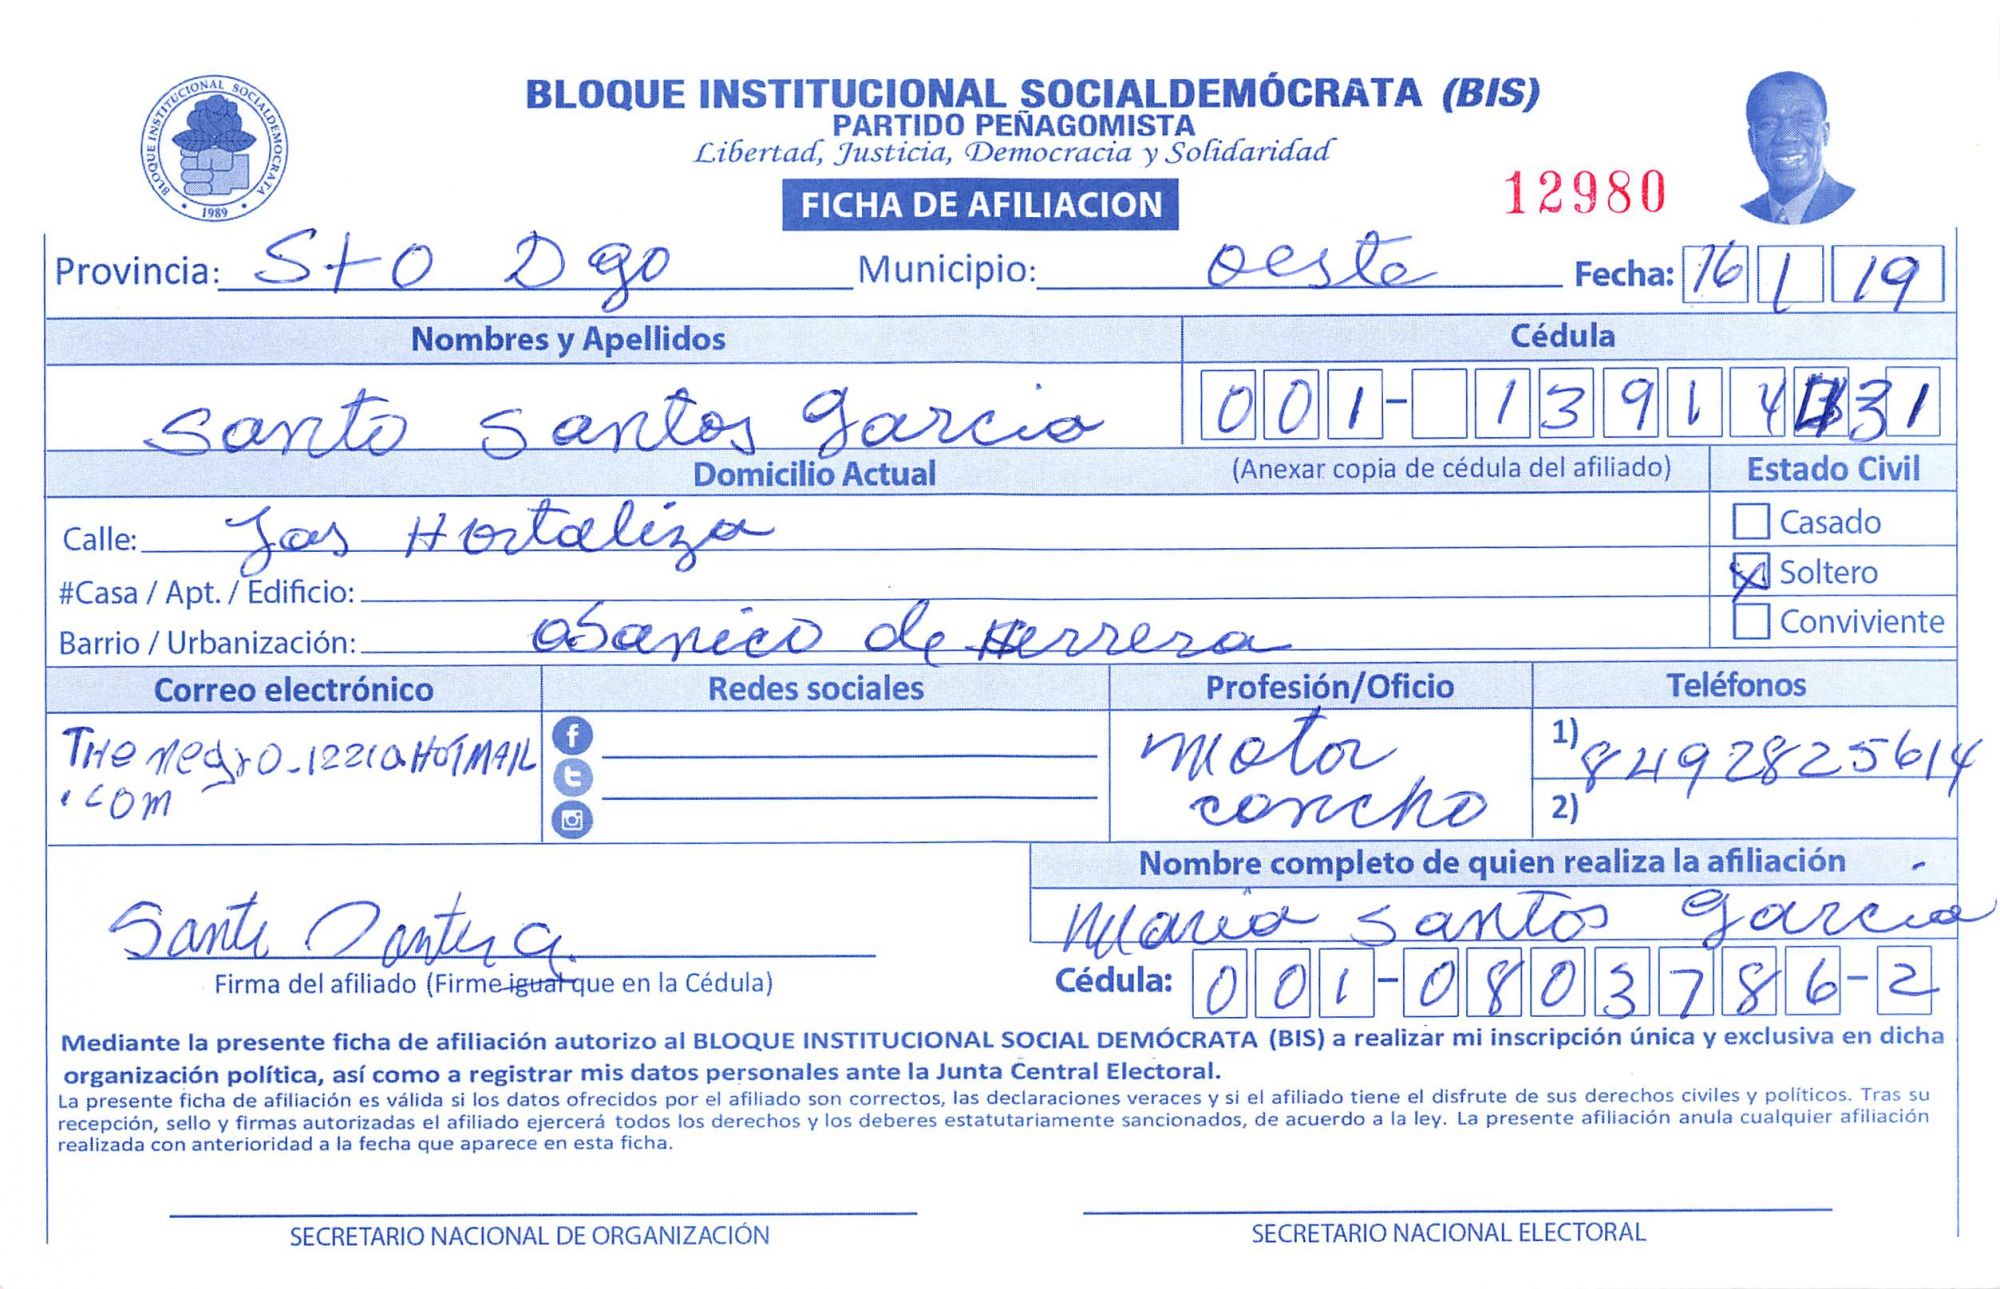 BLOQUE INSTITUCIONAL SOCIALDEMÓCRATA (BIS)
PARTIDO PEÑAGOMISTA
Libertad, Justicia, Democracia y Solidaridad
BLOQUE INSTITUCIONAL SOCIALDEMOCRATA
1989
FICHA DE AFILIACION
12980
Provincia: Sto Dgo Municipio: oeste Fecha: 16 1 19
Nombres y Apellidos Cédula
Santo Santos Garcia 001- 13914 31
Domicilio Actual (Anexar copia de cédula del afiliado) Estado Civil
Calle: Las Hortaliza Casado
#Casa / Apt. / Edificio: Soltero
Barrio / Urbanización: de Herrera Conviviente
Correo electrónico Redes sociales Profesión/Oficio Teléfonos
THe negro-1221@HOTMAIL Moto 1) 8492825614
.COM concho 2)
Nombre completo de quien realiza la afiliación
Maria Santos Garcia
Santo Santos G.
Firma del afiliado (Firme igual que en la Cédula) Cédula: 001-0803786-2
Mediante la presente ficha de afiliación autorizo al BLOQUE INSTITUCIONAL SOCIAL DEMÓCRATA (BIS) a realizar mi inscripción única y exclusiva en dicha
organización política, así como a registrar mis datos personales ante la Junta Central Electoral.
La presente ficha de afiliación es válida si los datos ofrecidos por el afiliado son correctos, las declaraciones veraces y si el afiliado tiene el disfrute de sus derechos civiles y políticos. Tras su
recepción, sello y firmas autorizadas el afiliado ejercerá todos los derechos y los deberes estatutariamente sancionados, de acuerdo a la ley. La presente afiliación anula cualquier afiliación
realizada con anterioridad a la fecha que aparece en esta ficha.
SECRETARIO NACIONAL DE ORGANIZACIÓN SECRETARIO NACIONAL ELECTORAL